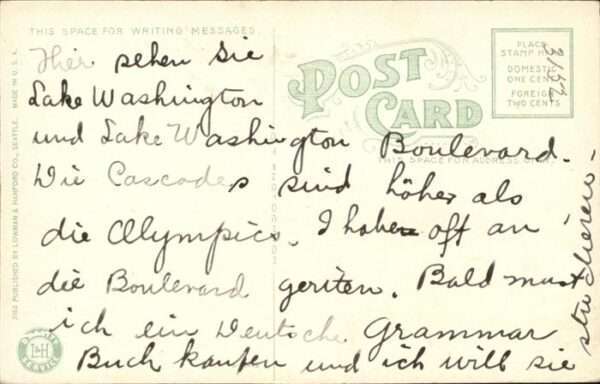 THIS SPACE FOR WRITING MESSAGES.
POST CARD
PLACE
STAMP HERE
DOMESTIC
ONE CENT
FOREIGN
TWO CENTS
THIS SPACE FOR ADDRESS ONLY.
3152 PUBLISHED BY LOWMAN & HANFORD CO., SEATTLE. MADE IN U.S.A.
L&H
Hier sehen Sie
Lake Washington
und Lake Washington Boulevard.
Die Cascades sind höher als
die Olympics. I habe oft an
die Boulevard geriten. Bald must
ich ein Deutsche Grammar
Buch kaufen und ich will sie
studieren!
3152